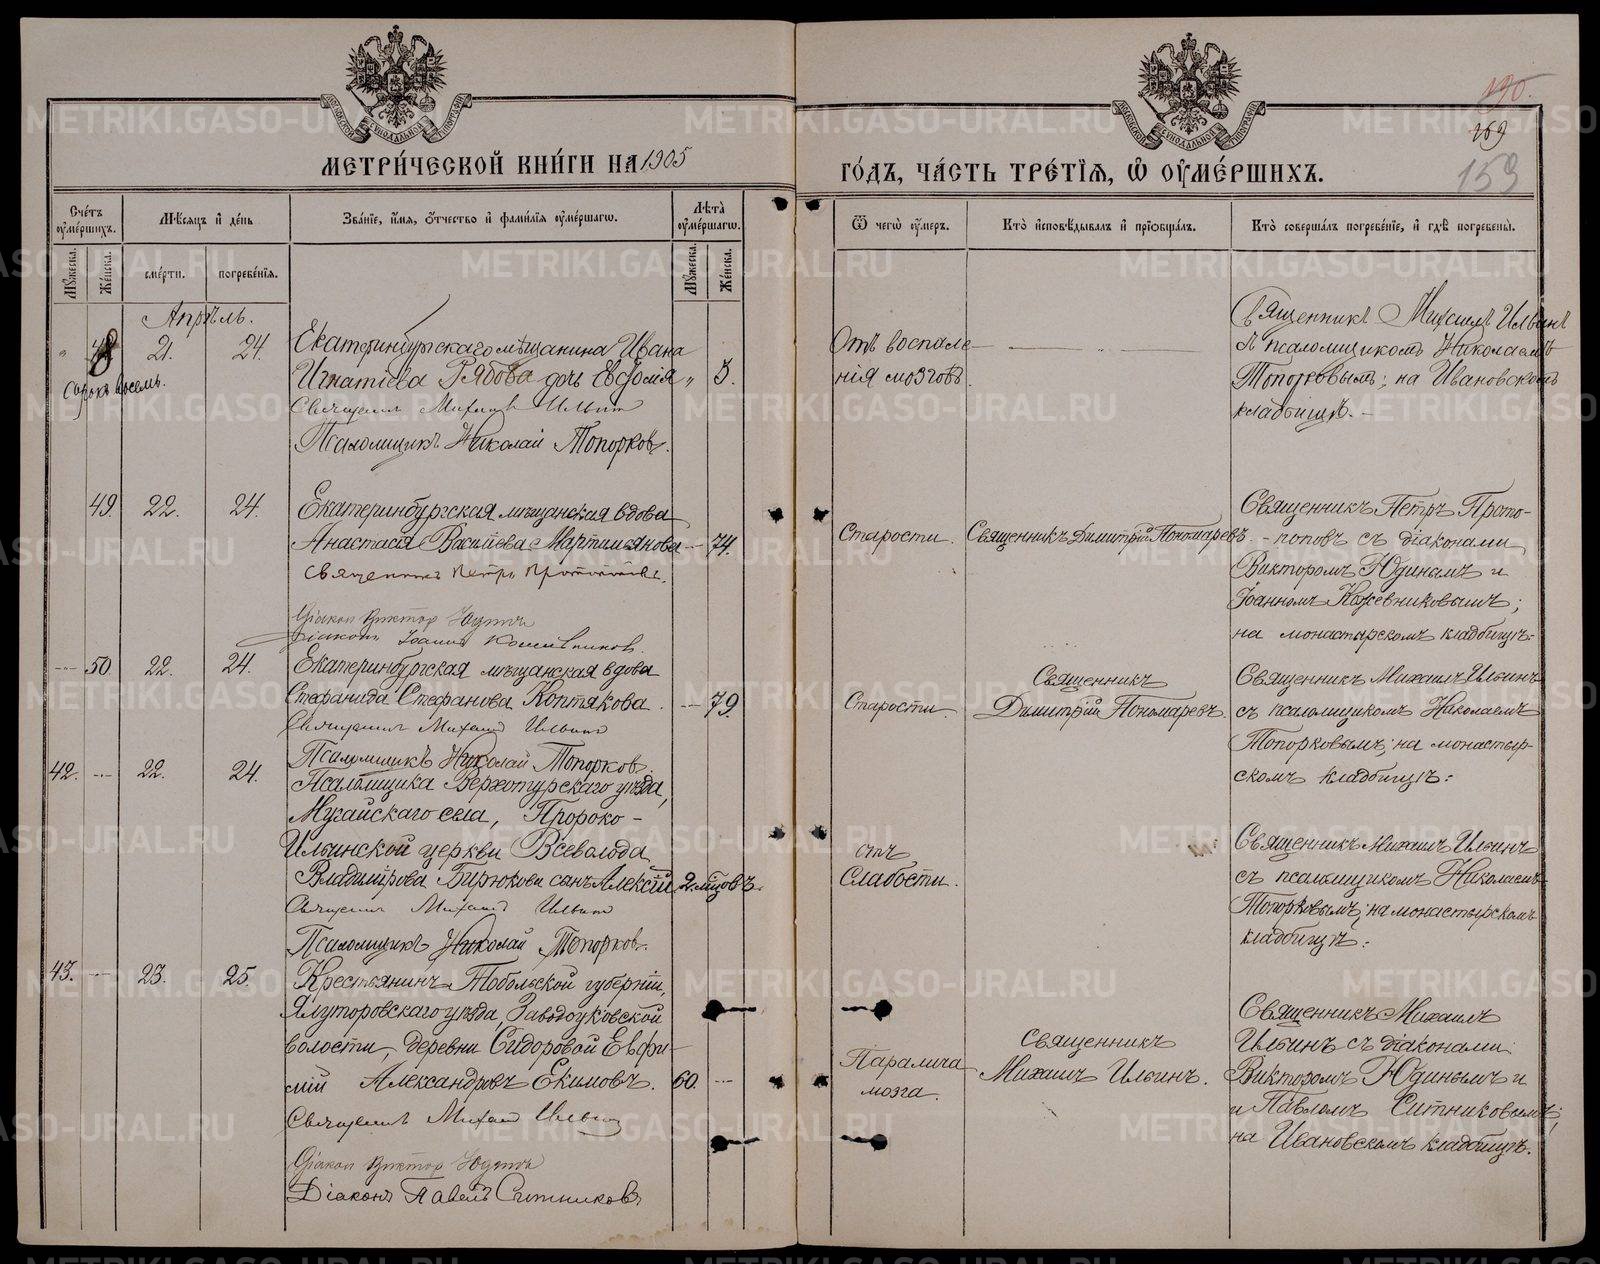 МЕТРИ́ЧЕСКОЙ КНИ́ГИ НА 1905
ГО́ДЪ, ЧА́СТЬ ТРЕ́ТІѦ, Ѡ ОУМЕ́РШИХЪ.
190.
269
159
Сче́тъ оуме́ршихъ.
Мѣ́сѧцъ и де́нь
Зва́нїе, и́мѧ, о́тчество и фами́лїѧ оуме́ршагѡ.
Лѣ́та оуме́ршагѡ.
Ѿ чегѡ̀ оу́меръ.
Кто̀ и҆сповѣ́дывалъ и҆ прїѡбща́лъ.
Кто̀ соверша́лъ погребе́нїе, и҆ гдѣ̀ погребены̀.
Мꙋ́жеска.
Же́нска.
сме́рти.
погребе́нїѧ.
Мꙋ́жеска.
Же́нска.
Апрѣль.
48
сорокъ восемь.
21.
24.
Екатеринбургскаго мѣщанина Ивана
Игнатіева Рябова дочь Евфолія
Священникъ Михаилъ Ильинъ
Псаломщикъ Николай Топорковъ.
3.
Отъ воспале-
нія мозговъ.
Священникъ Михаилъ Ильинъ
съ псаломщикомъ Николаемъ
Топорковымъ; на Ивановскомъ
кладбищѣ.
49.
22.
24.
Екатеринбургская мѣщанская вдова
Анастасія Васильева Мартемьянова
Священникъ Петръ Протопоповъ.
Діаконъ Викторъ Юдинъ
Діаконъ Іоаннъ Кожевниковъ.
74.
Старости.
Священникъ Димитрій Пономаревъ.
Священникъ Петръ Прото-
-поповъ съ діаконами
Викторомъ Юдинымъ и
Іоанномъ Кожевниковымъ;
на монастырскомъ кладбищѣ.
50
22.
24.
Екатеринбургская мѣщанская вдова
Стефанида Стефанова Коптякова.
Священникъ Михаилъ Ильинъ
Псаломщикъ Николай Топорковъ.
79.
Старости.
Священникъ
Димитрій Пономаревъ.
Священникъ Михаилъ Ильинъ
съ псаломщикомъ Николаемъ
Топорковымъ; на монастыр-
скомъ кладбищѣ.
42.
22.
24.
Псаломщика Верхотурскаго уѣзда,
Мугайскаго села, Пророко-
Ильинской церкви Всеволода
Владимірова Бирюкова сынъ Алексій
Священникъ Михаилъ Ильинъ
Псаломщикъ Николай Топорковъ.
2. мѣсцовъ.
отъ
Слабости.
Священникъ Михаилъ Ильинъ
съ псаломщикомъ Николаемъ
Топорковымъ; на монастырскомъ
кладбищѣ.
43.
23.
25.
Крестьянинъ Тобольской губерніи,
Ялуторовскаго уѣзда, Заводоуковской
волости, деревни Сидоровой Евфи-
мій Александровъ Екимовъ.
Священникъ Михаилъ Ильинъ
Діаконъ Викторъ Юдинъ
Діаконъ Павелъ Ситниковъ
60.
Паралича
мозга.
Священникъ
Михаилъ Ильинъ.
Священникъ Михаилъ
Ильинъ съ діаконами
Викторомъ Юдинымъ и
и Павломъ Ситниковымъ;
на Ивановскомъ кладбищѣ.
METRIKI.GASO-URAL.RU